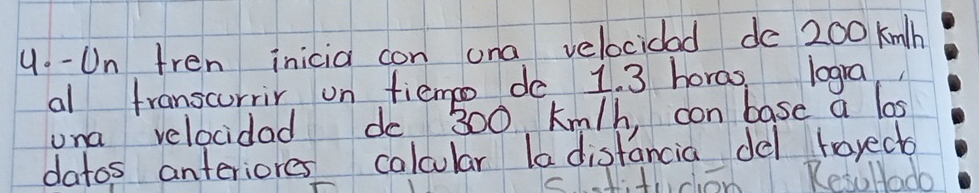 4.-Un tren inicia con una velocidad de 200 Km/h
al transcurrir un tiempo de 1.3 horas, logra,
una velocidad de 300 Km/h, con base a los
datos anteriores calcular la distancia del trayecto
Resultado